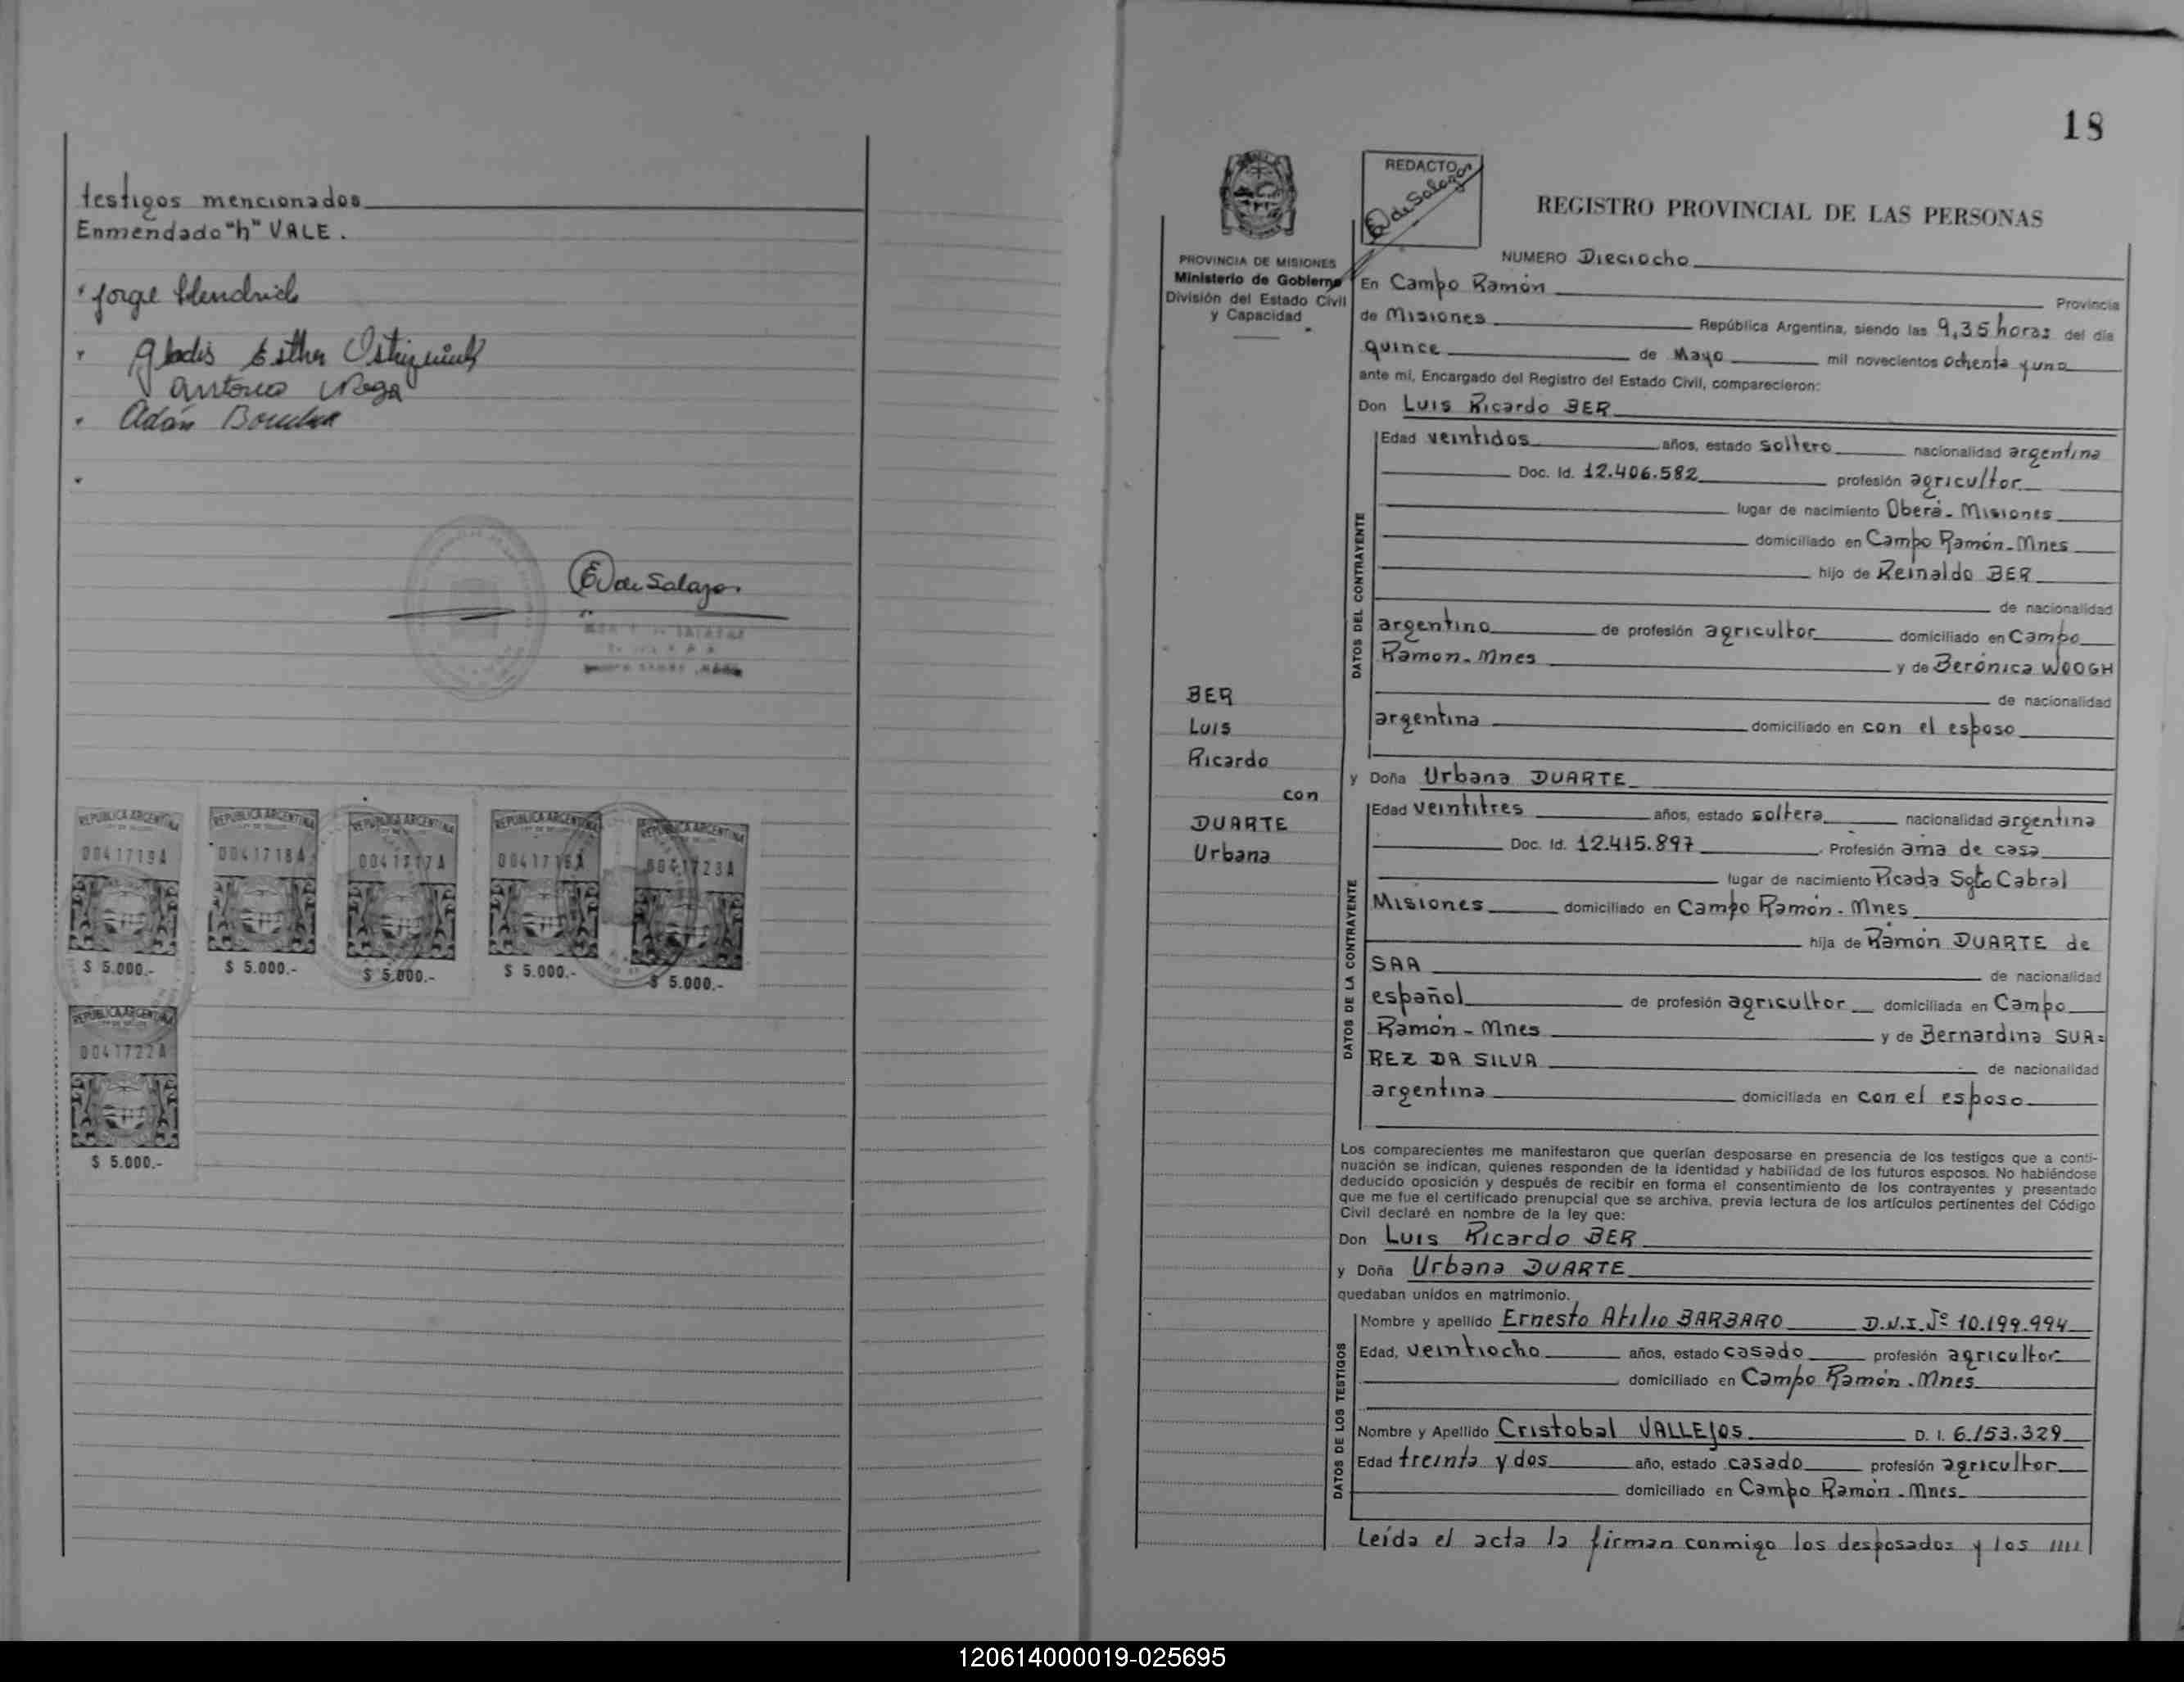 testigos mencionados
Enmendado "h" VALE.
Jorge Hendrich
Gladis Esther
Antonio Vega
Adán
E de Salazar
REPUBLICA ARGENTINA
0041719A
$ 5.000.-
REPUBLICA ARGENTINA
0041718A
$ 5.000.-
REPUBLICA ARGENTINA
0041717A
$ 5.000.-
REPUBLICA ARGENTINA
0041716A
$ 5.000.-
REPUBLICA ARGENTINA
0041723A
$ 5.000.-
REPUBLICA ARGENTINA
0041722A
$ 5.000.-
18
REDACTO
E de Salazar
REGISTRO PROVINCIAL DE LAS PERSONAS
PROVINCIA DE MISIONES
Ministerio de Gobierno
División del Estado Civil
y Capacidad
BER
Luis
Ricardo
con
DUARTE
Urbana
NUMERO Dieciocho
En Campo Ramón Provincia
de Misiones República Argentina, siendo las 9,35 horas del día
quince de Mayo mil novecientos ochenta y uno
ante mí, Encargado del Registro del Estado Civil, comparecieron:
Don Luis Ricardo BER
DATOS DEL CONTRAYENTE
Edad veintidos años, estado soltero nacionalidad argentina
Doc. Id. 12.406.582 profesión agricultor
lugar de nacimiento Oberá-Misiones
domiciliado en Campo Ramón-Mnes
hijo de Reinaldo BER
de nacionalidad
argentino de profesión agricultor domiciliado en Campo
Ramon-Mnes y de Berónica WOOGH
de nacionalidad
argentina domiciliado en con el esposo
y Doña Urbana DUARTE
DATOS DE LA CONTRAYENTE
Edad veintitres años, estado soltera nacionalidad argentina
Doc. Id. 12.415.897 Profesión ama de casa
lugar de nacimiento Picada Sgto Cabral
Misiones domiciliado en Campo Ramón-Mnes
hija de Ramón DUARTE de
SAA de nacionalidad
español de profesión agricultor domiciliada en Campo
Ramón-Mnes y de Bernardina SUA=
REZ DA SILVA de nacionalidad
argentina domiciliada en con el esposo
Los comparecientes me manifestaron que querían desposarse en presencia de los testigos que a conti-
nuación se indican, quienes responden de la identidad y habilidad de los futuros esposos. No habiéndose
deducido oposición y después de recibir en forma el consentimiento de los contrayentes y presentado
que me fue el certificado prenupcial que se archiva, previa lectura de los artículos pertinentes del Código
Civil declaré en nombre de la ley que:
Don Luis Ricardo BER
y Doña Urbana DUARTE
quedaban unidos en matrimonio.
DATOS DE LOS TESTIGOS
Nombre y apellido Ernesto Atilio BARBARO D.N.I. Nº 10.199.994
Edad, veintiocho años, estado casado profesión agricultor
domiciliado en Campo Ramón-Mnes
Nombre y Apellido Cristobal VALLEJOS D. I. 6.153.329
Edad treinta y dos año, estado casado profesión agricultor
domiciliado en Campo Ramón-Mnes
Leída el acta la firman conmigo los desposados y los
120614000019-025695